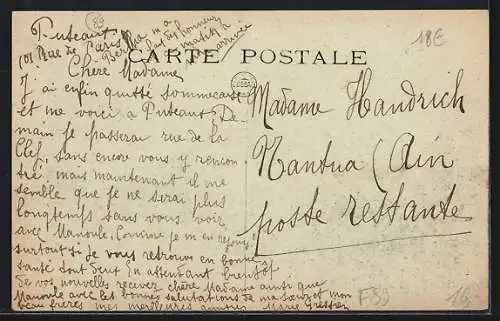 Puteaux
101 Rue de Paris
Bertha m'a
fait des honneurs
matin à
arrivée
18E
CARTE POSTALE
Chère Madame
J'ai enfin quitté
et me voici à Puteaux De
main je passerai rue de la
Clef, sans encore vous y rencon
tré, mais maintenant il me
semble que je ne serai plus
longtemps sans vous voir
avec Manoule, Comme je m'en réjouis
surtout si je vous retrouve en bonne
santé tout deux En attendant bientôt
de vos nouvelles recevez chère Madame ainsi que
Manoule avec les bonnes salutations de ma sœur et mon
beau frère mes meilleures amitiés Marie
Madame Handrich
Nantua (Ain
poste restante
F39
16,